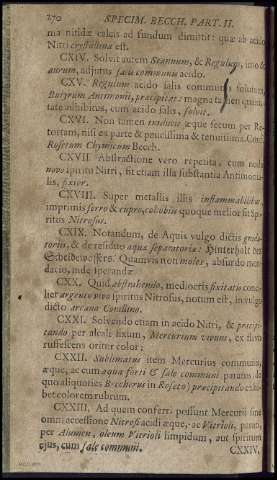 270 SPECIM. BECCH. PART. II.
ma nitidæ calcis ad fundum dimittit: quæ ab acido
Nitri crystallina est.
CXIV. Solvit autem Stannum, & Regulum, imo &
aurum, adjutus salis communis acido.
CXV. Regulum acido salis communis solutum,
Butyrum Antimonii, præcipitat: magna tamen quan-
tate adhibitus, cum acido salis, solvit.
CXVI. Non tamen evidenter æque secum per Re-
tortam, nisi ex parte & paucissima & tenuissima. Conf.
Rosetum Chymicum Becch.
CXVII. Abstractione vero repetita, cum
novo spiritu Nitri, fit etiam illa substantia Antimonia-
lis, fixior.
CXVIII. Super metallis illis inflammabilibus,
imprimis ferro & cupro, cohobiis quoque melior fit Spi-
ritus Nitrosus.
CXIX. Notandum, de Aquis vulgo dictis grada-
toriis, & de residuo aquæ separatoriæ: Hinterhalt des
Scheidewassers. Quamvis non absurdo
dacio, inde sperandæ
CXX. Quid abstrahendo, mediocris fixitatis conci-
liet argento vivo spiritus Nitrosus, notum est, in vulgo
dicto arcano Corallino.
CXXI. Solvendo etiam in acido Nitri, & præcipi-
tando per alcali fixum, Mercurium vivum, ex flavo
ruffescens oritur color;
CXXII. Sublimatus item Mercurius communis,
æque, ac cum aqua forti & sale communi paratus,
quo aliquoties Becherus in Roseto; præcipitando exhi-
bet colorem rubrum.
CXXIII. Ad quem conferri possunt Mercurii sine
omni accessione Nitrosi acidi æque, ac Vitrioli, parati,
per Alumen, oleum Vitrioli limpidum, aut spiritum
ejus, cum sale communi. CXXIV.